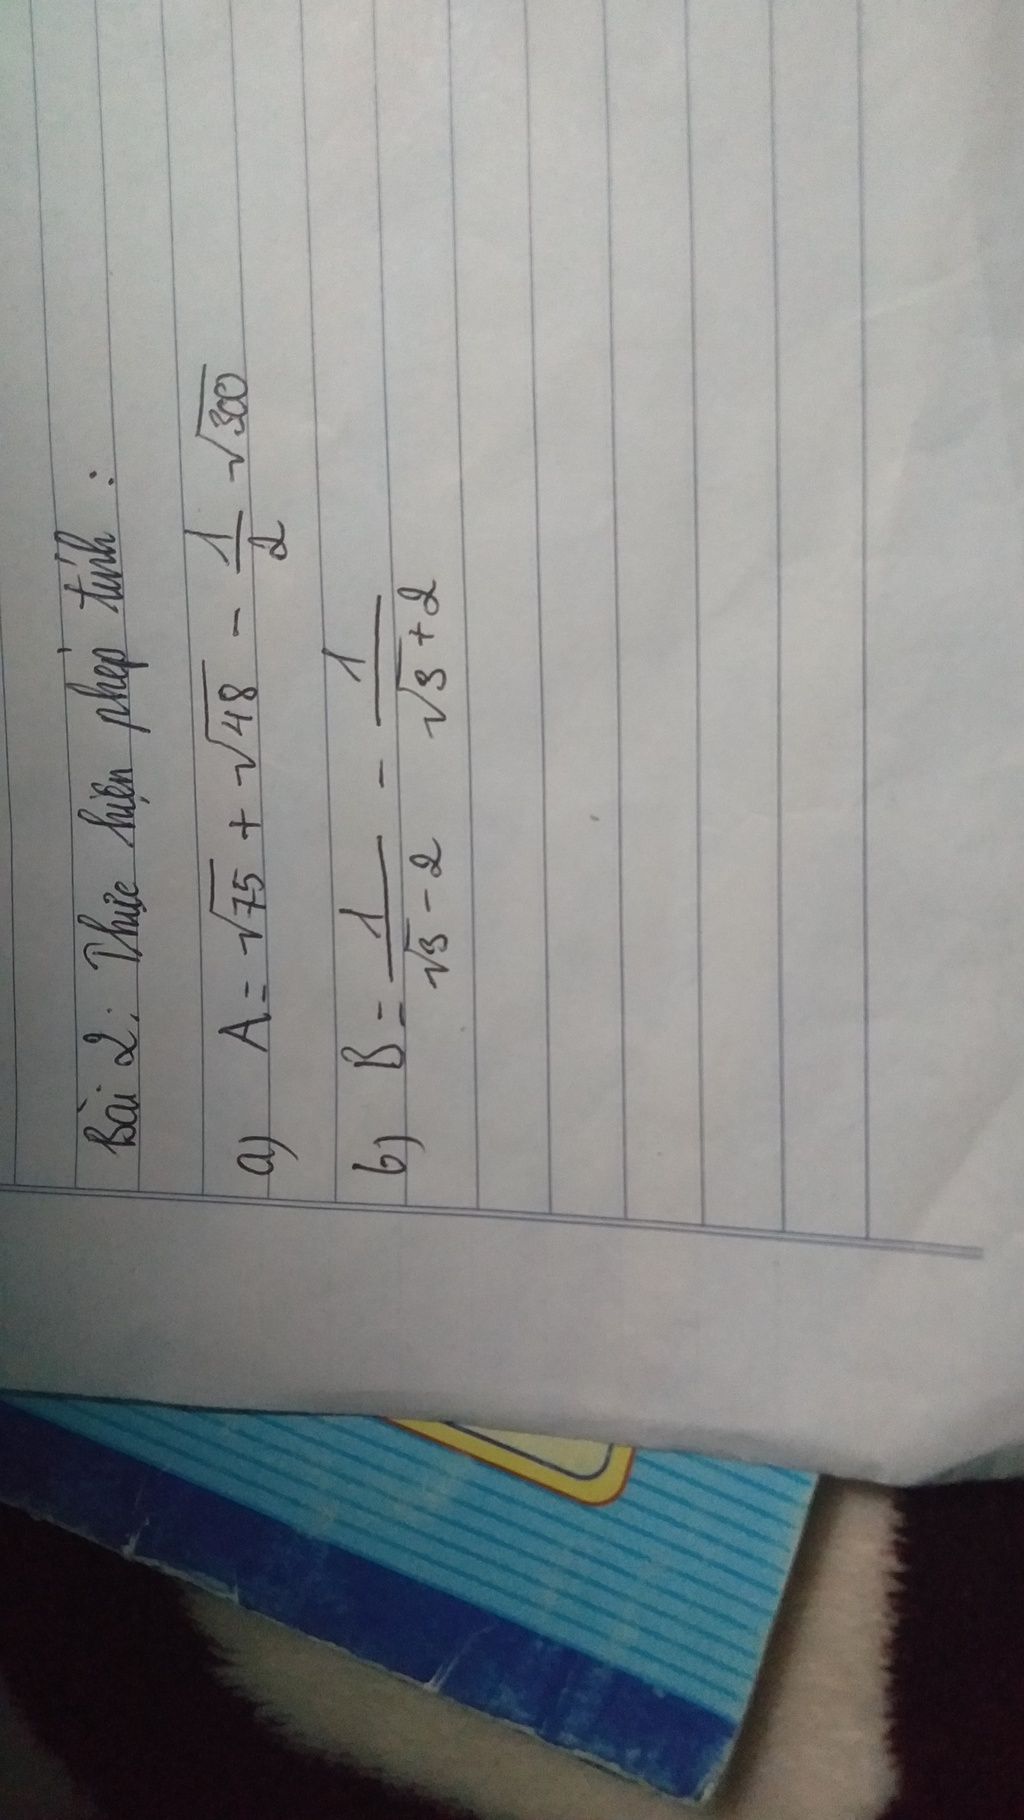 Bài 2: Thực hiện phép tính:
a) A = √75 + √48 - 1/2 √300
b) B = 1/(√3 - 2) - 1/(√3 + 2)